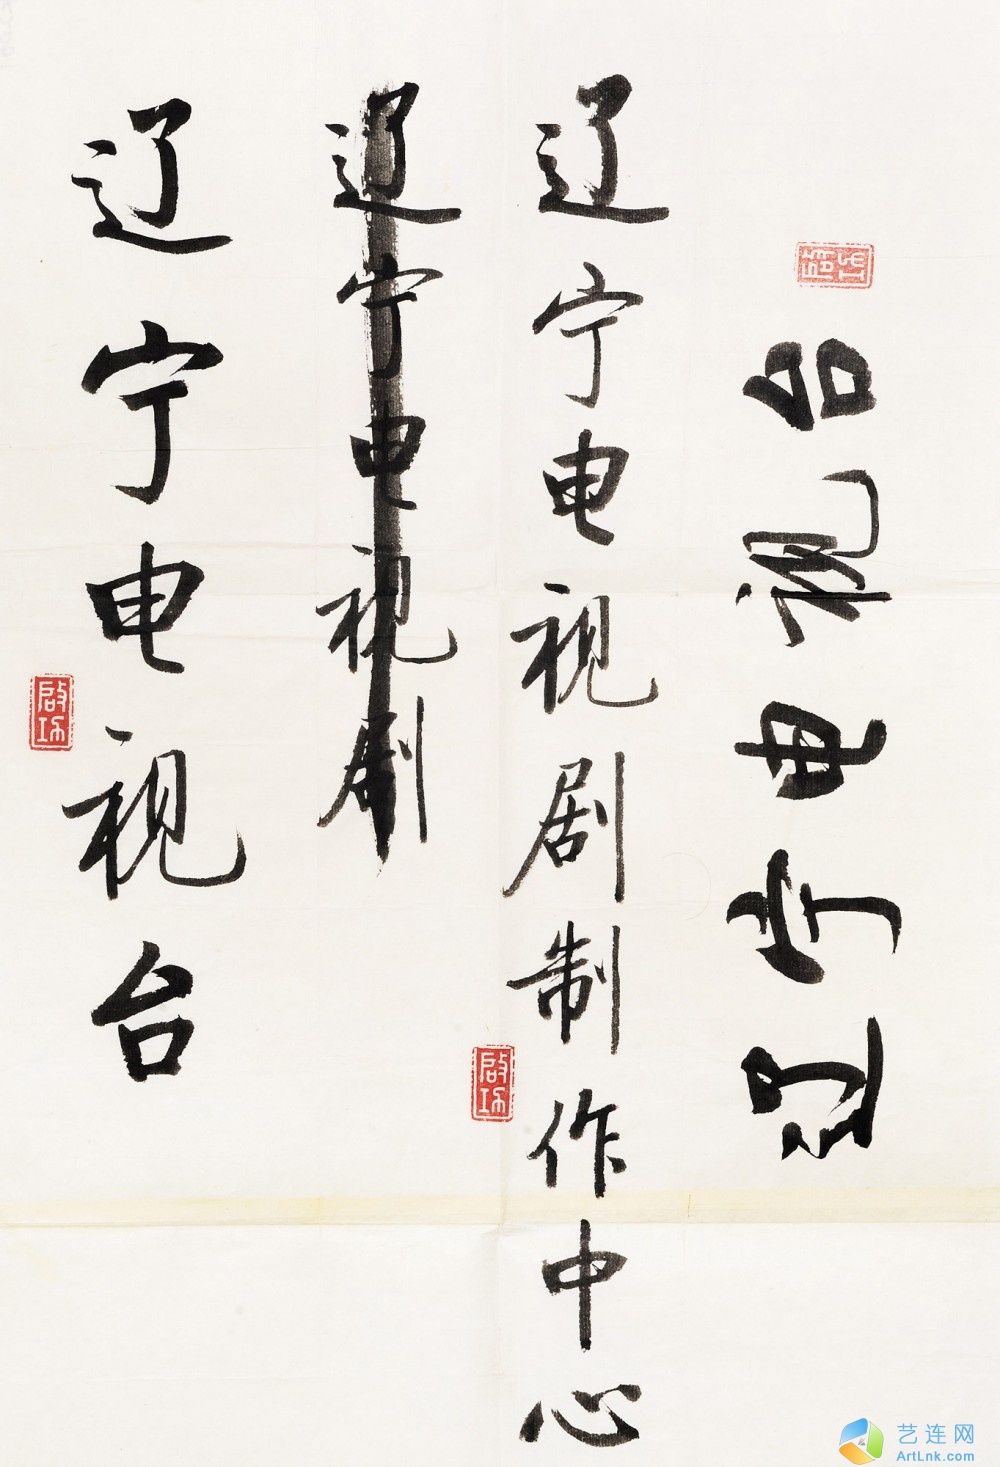 辽宁电视台
启功
辽宁电视剧
辽宁电视剧制作中心
启功
辽宁电视台
启功
艺连网
ArtLnk.com